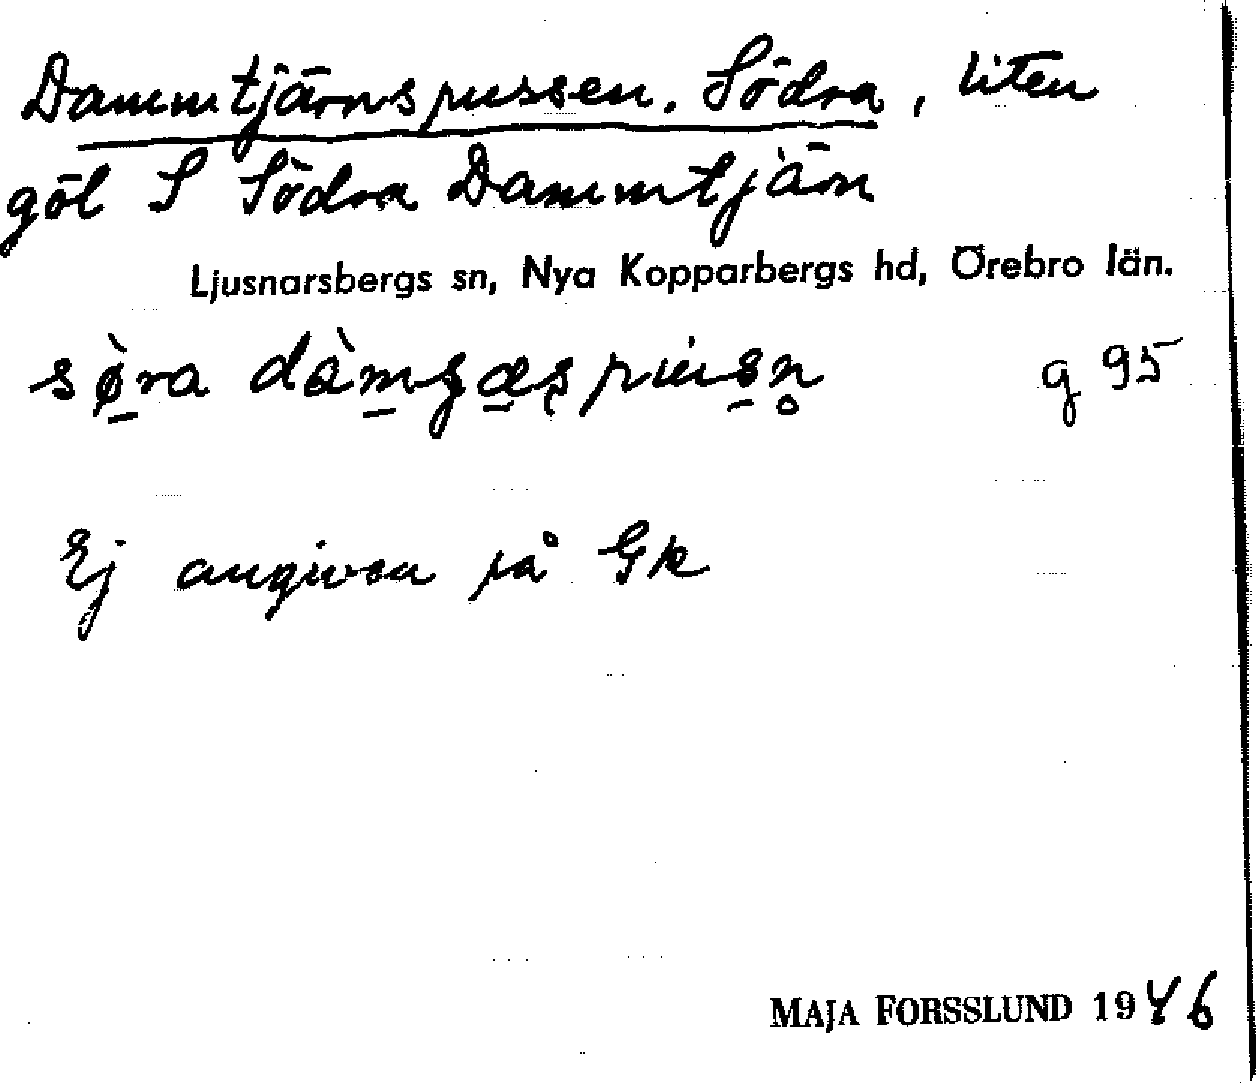 Dammtjärnspussen, Södra, liten
göl S Södra Dammtjärn
Ljusnarsbergs sn, Nya Kopparbergs hd, Örebro län.
g 95
Ej angiven på Gk
MAJA FORSSLUND 1946